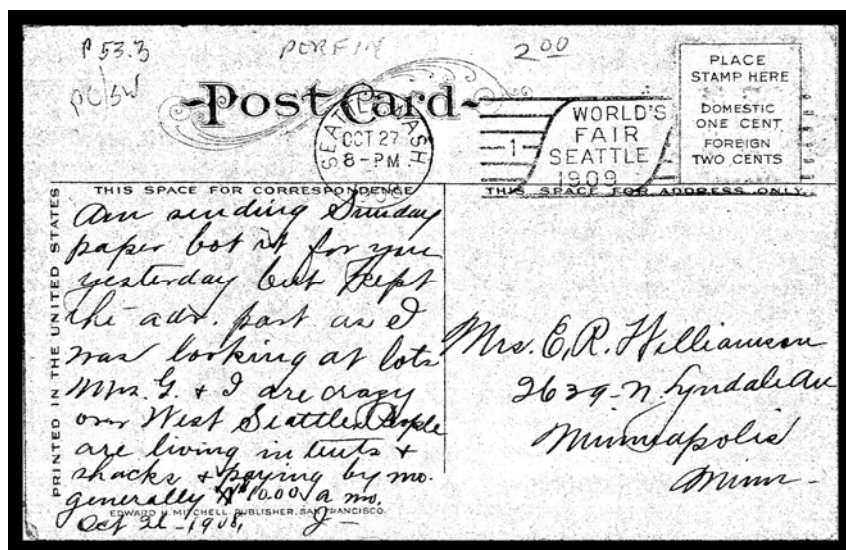 P 53.3
PERFIN
2.00
PC/SW
Post Card
SEATTLE WASH.
OCT 27
8-PM
1
WORLD'S
FAIR
SEATTLE
1909
PLACE
STAMP HERE
DOMESTIC
ONE CENT
FOREIGN
TWO CENTS
THIS SPACE FOR CORRESPONDENCE
THIS SPACE FOR ADDRESS ONLY
PRINTED IN THE UNITED STATES
Am sending Sunday
paper bot it for you
yesterday but kept
the adv. part as I
was looking at lots
Mrs. G. & I are crazy
over West Seattle. People
are living in tents &
shacks & paying by mo.
generally $10.00 a mo.
Oct 26-1908. J-
EDWARD H. MITCHELL, PUBLISHER, SAN FRANCISCO.
Mrs. E. R. Williamson
2639-N. Lyndale Av
Minneapolis
Minn-